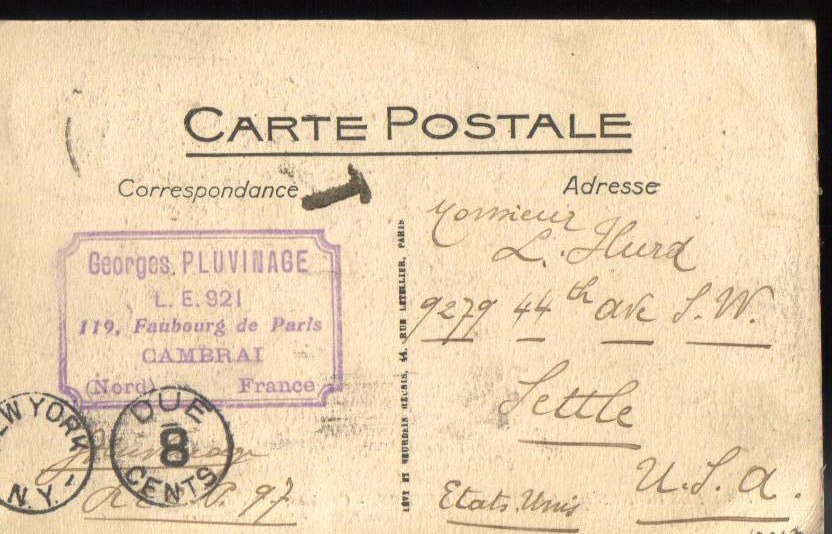 CARTE POSTALE
Correspondance
T
Adresse
Georges PLUVINAGE
L. E. 921
119, Faubourg de Paris
CAMBRAI
(Nord) France
NEW YORK
N.Y.
DUE
8
CENTS
97
LÉVY ET NEURDEIN RÉUNIS, 44, RUE LETELLIER, PARIS
Monsieur
L. Hurd
9279 44th ave S.W.
Settle
U.S.A.
Etats Unis